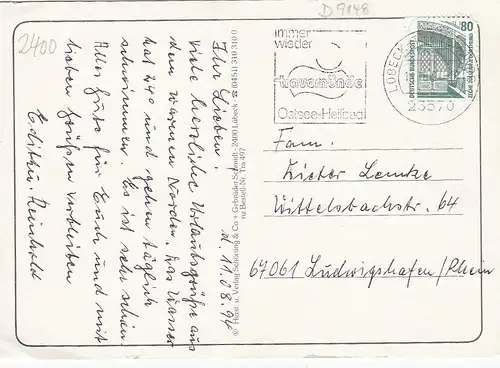 2400
D 9848
immer
wieder
travemünde
Ostsee-Heilbad
LÜBECK
23570
80
DEUTSCHE BUNDESPOST
d. 11.08.94
Ihr Lieben!
Viele herzliche Urlaubsgrüße aus
dem warmen Norden. Das Wasser
hat 24° und gehen täglich
schwimmen. Es ist sehr schön.
Alles Gute für Euch und mit
lieben Grüßen verbleiben
Edith u. Reinhold
© Herst. u. Verlag Schöning & Co + Gebrüder Schmidt · 2400 Lübeck · ☎ (0451) 31 03 10
Bestell-Nr. Tra 497
Fam.
Dieter Lemke
Wittelsbachstr. 64
67061 Ludwigshafen/Rhein